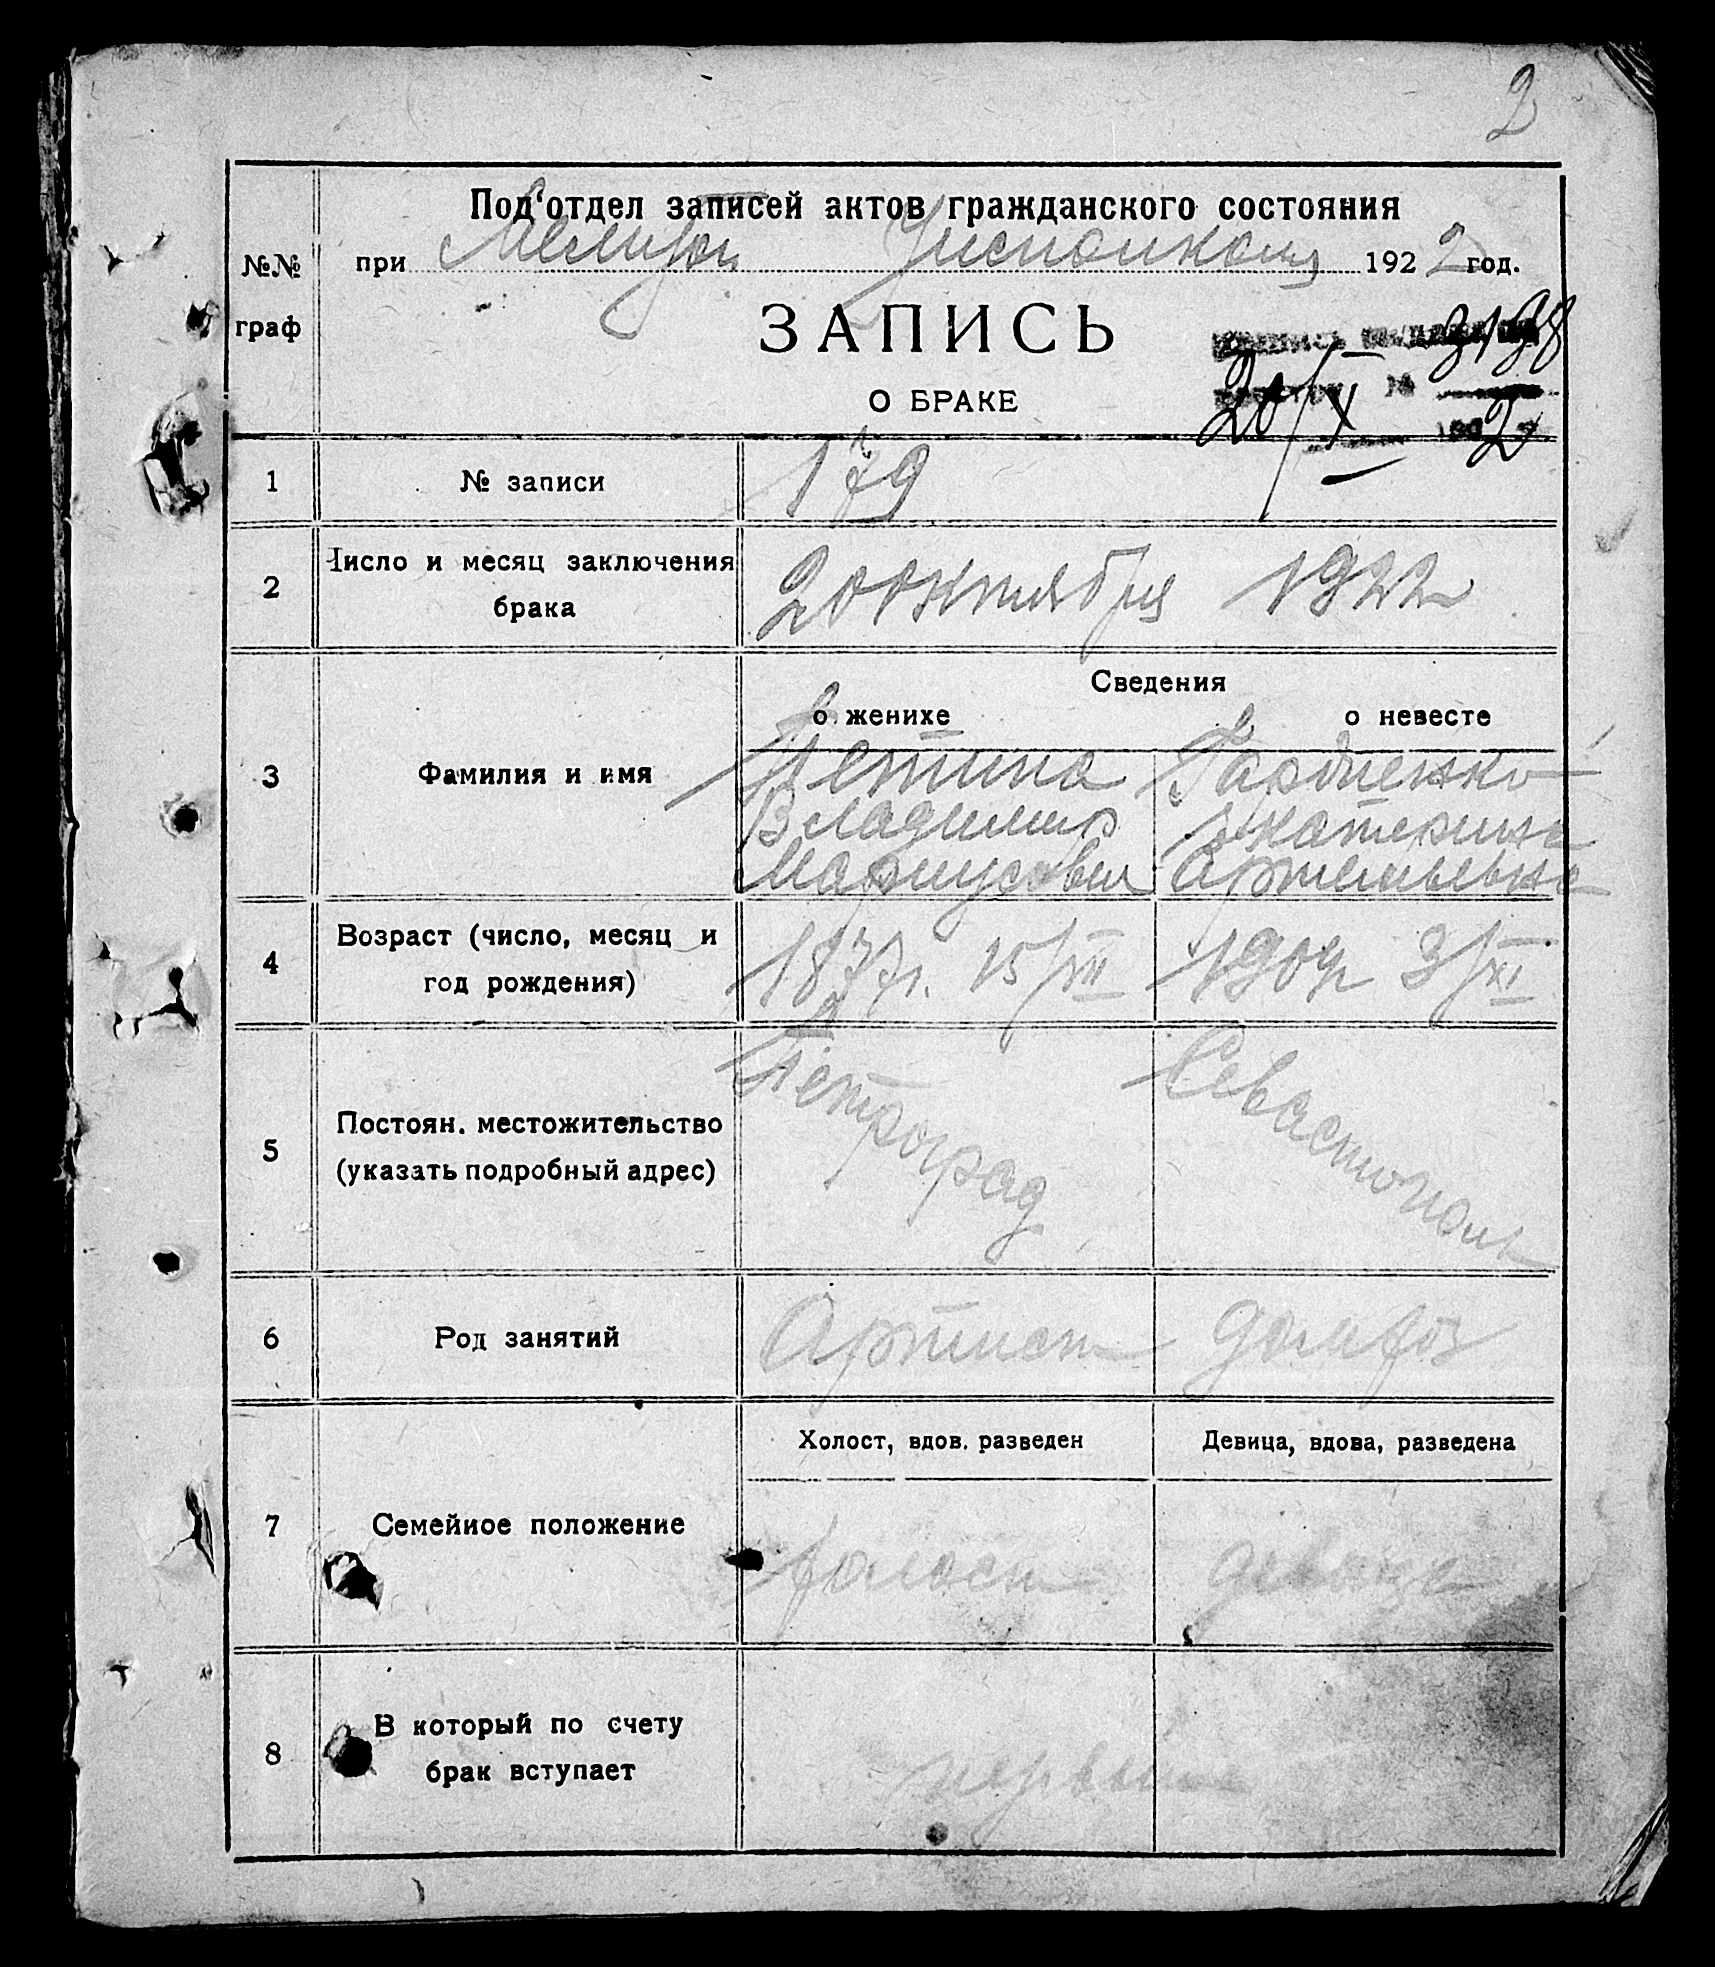 2
Под'отдел записей актов гражданского состояния
№№ граф
при Мелитоп Уисполкома 1922 год.
ЗАПИСЬ
О БРАКЕ
3198
№
20/X 192 2
1 № записи 179
2 Число и месяц заключения брака 20 октября 1922
Сведения
о женихе о невесте
3 Фамилия и имя
Петипа Гордиенко
Владимир Екатерина
Мариусович Артемьевна
4 Возраст (число, месяц и год рождения) 1877г. 15/VII 1904г 3/XI
5 Постоян. местожительство (указать подробный адрес) Петроград Севастополь
6 Род занятий Артист домхоз
Холост, вдов. разведен Девица, вдова, разведена
7 Семейное положение холост девица
8 В который по счету брак вступает первый